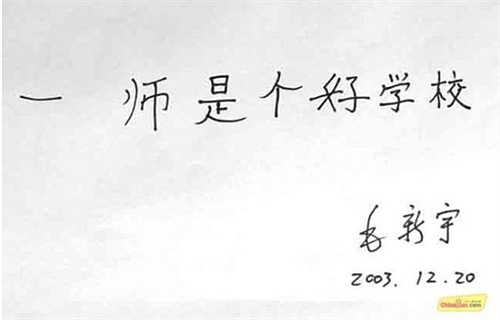 一师是个好学校
毛新宇
2003.12.20